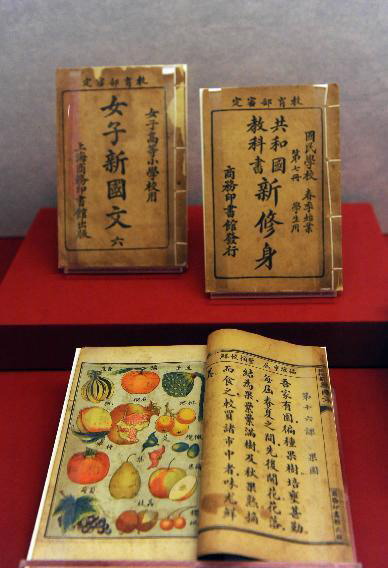 教育部審定
女子高等小學校用
女子新國文 六
上海商務印書館出版
教育部審定
國民學校 春季始業
第七冊 學生用
共和國
教科書
新修身
商務印書館發行
第十六課 果園
吾家有園徧種果樹培壅甚勤
每屆春夏之間先後開花花落
結為果纍纍滿樹及秋果熟摘
而食之較買諸市中者味尤鮮